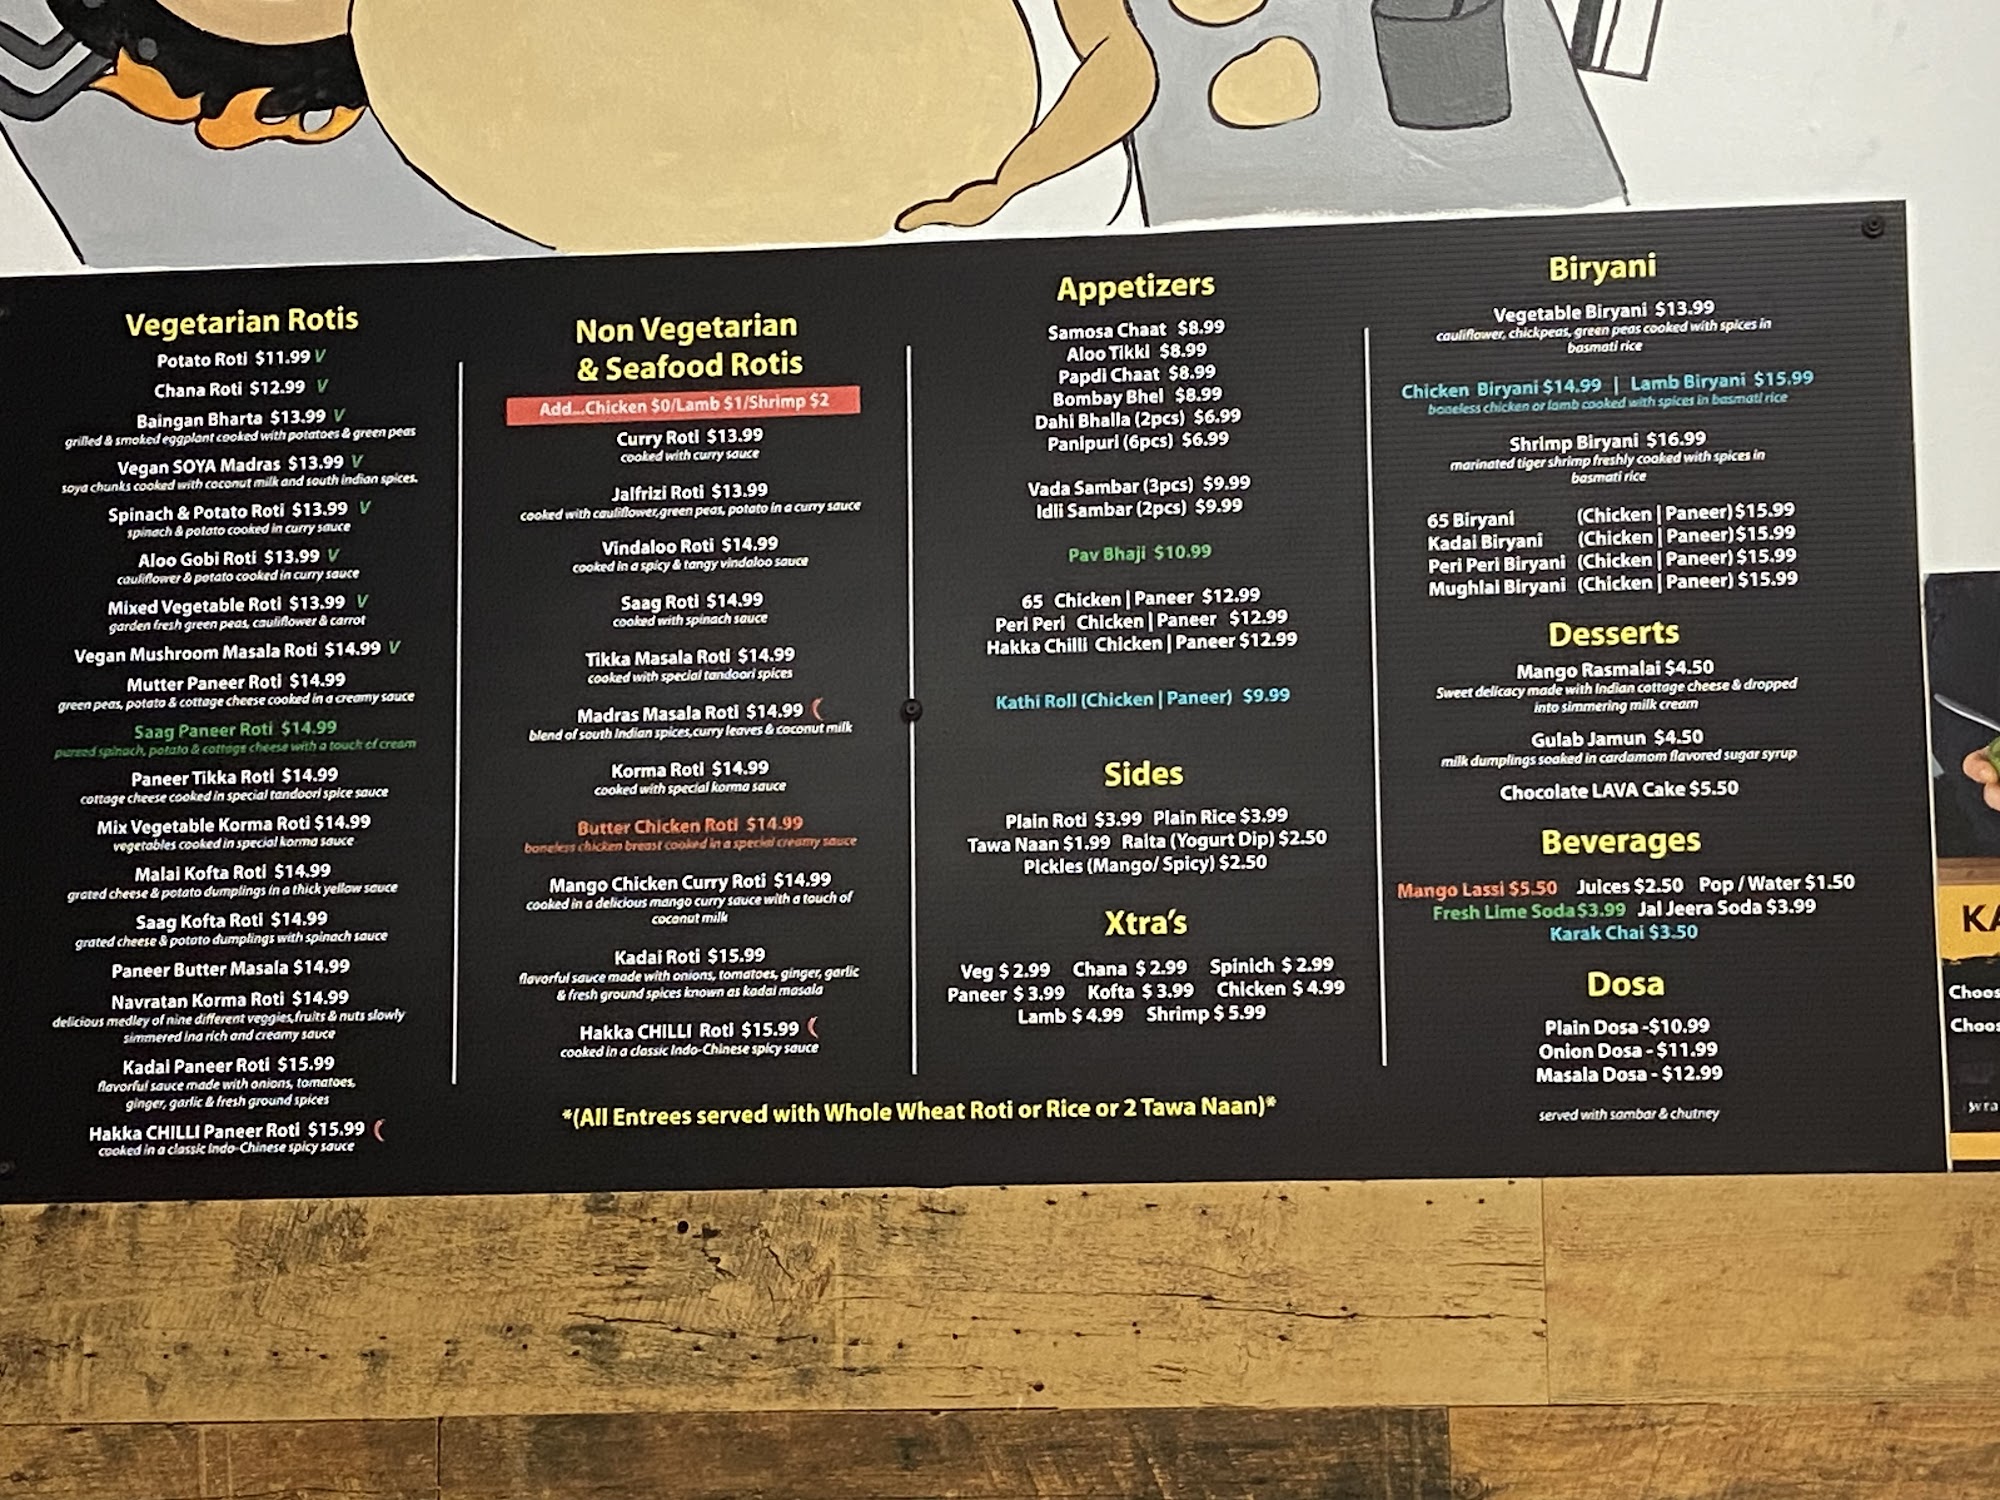 Vegetarian Rotis
Potato Roti $11.99 V
Chana Roti $12.99 V
Baingan Bharta $13.99 V
grilled & smoked eggplant cooked with potatoes & green peas
Vegan SOYA Madras $13.99 V
soya chunks cooked with coconut milk and south indian spices.
Spinach & Potato Roti $13.99 V
spinach & potato cooked in curry sauce
Aloo Gobi Roti $13.99 V
cauliflower & potato cooked in curry sauce
Mixed Vegetable Roti $13.99 V
garden fresh green peas, cauliflower & carrot
Vegan Mushroom Masala Roti $14.99 V
Mutter Paneer Roti $14.99
green peas, potato & cottage cheese cooked in a creamy sauce
Saag Paneer Roti $14.99
pureed spinach, potato & cottage cheese with a touch of cream
Paneer Tikka Roti $14.99
cottage cheese cooked in special tandoori spice sauce
Mix Vegetable Korma Roti $14.99
vegetables cooked in special korma sauce
Malai Kofta Roti $14.99
grated cheese & potato dumplings in a thick yellow sauce
Saag Kofta Roti $14.99
grated cheese & potato dumplings with spinach sauce
Paneer Butter Masala $14.99
Navratan Korma Roti $14.99
delicious medley of nine different veggies,fruits & nuts slowly
simmered ina rich and creamy sauce
Kadai Paneer Roti $15.99
flavorful sauce made with onions, tomatoes,
ginger, garlic & fresh ground spices
Hakka CHILLI Paneer Roti $15.99
cooked in a classic Indo-Chinese spicy sauce
Non Vegetarian
& Seafood Rotis
Add...Chicken $0/Lamb $1/Shrimp $2
Curry Roti $13.99
cooked with curry sauce
Jalfrizi Roti $13.99
cooked with cauliflower,green peas, potato in a curry sauce
Vindaloo Roti $14.99
cooked in a spicy & tangy vindaloo sauce
Saag Roti $14.99
cooked with spinach sauce
Tikka Masala Roti $14.99
cooked with special tandoori spices
Madras Masala Roti $14.99
blend of south Indian spices,curry leaves & coconut milk
Korma Roti $14.99
cooked with special korma sauce
Butter Chicken Roti $14.99
boneless chicken breast cooked in a special creamy sauce
Mango Chicken Curry Roti $14.99
cooked in a delicious mango curry sauce with a touch of
coconut milk
Kadai Roti $15.99
flavorful sauce made with onions, tomatoes, ginger, garlic
& fresh ground spices known as kadai masala
Hakka CHILLI Roti $15.99
cooked in a classic Indo-Chinese spicy sauce
Appetizers
Samosa Chaat $8.99
Aloo Tikki $8.99
Papdi Chaat $8.99
Bombay Bhel $8.99
Dahi Bhalla (2pcs) $6.99
Panipuri (6pcs) $6.99
Vada Sambar (3pcs) $9.99
Idli Sambar (2pcs) $9.99
Pav Bhaji $10.99
65 Chicken | Paneer $12.99
Peri Peri Chicken | Paneer $12.99
Hakka Chilli Chicken | Paneer $12.99
Kathi Roll (Chicken | Paneer) $9.99
Sides
Plain Roti $3.99 Plain Rice $3.99
Tawa Naan $1.99 Raita (Yogurt Dip) $2.50
Pickles (Mango/ Spicy) $2.50
Xtra's
Veg $ 2.99 Chana $ 2.99 Spinich $ 2.99
Paneer $ 3.99 Kofta $ 3.99 Chicken $ 4.99
Lamb $ 4.99 Shrimp $ 5.99
*(All Entrees served with Whole Wheat Roti or Rice or 2 Tawa Naan)*
Biryani
Vegetable Biryani $13.99
cauliflower, chickpeas, green peas cooked with spices in
basmati rice
Chicken Biryani $14.99 | Lamb Biryani $15.99
boneless chicken or lamb cooked with spices in basmati rice
Shrimp Biryani $16.99
marinated tiger shrimp freshly cooked with spices in
basmati rice
65 Biryani (Chicken | Paneer) $15.99
Kadai Biryani (Chicken | Paneer) $15.99
Peri Peri Biryani (Chicken | Paneer) $15.99
Mughlai Biryani (Chicken | Paneer) $15.99
Desserts
Mango Rasmalai $4.50
Sweet delicacy made with Indian cottage cheese & dropped
into simmering milk cream
Gulab Jamun $4.50
milk dumplings soaked in cardamom flavored sugar syrup
Chocolate LAVA Cake $5.50
Beverages
Mango Lassi $5.50 Juices $2.50 Pop / Water $1.50
Fresh Lime Soda $3.99 Jal Jeera Soda $3.99
Karak Chai $3.50
Dosa
Plain Dosa -$10.99
Onion Dosa - $11.99
Masala Dosa - $12.99
served with sambar & chutney
KA
Choos
Choos
wra